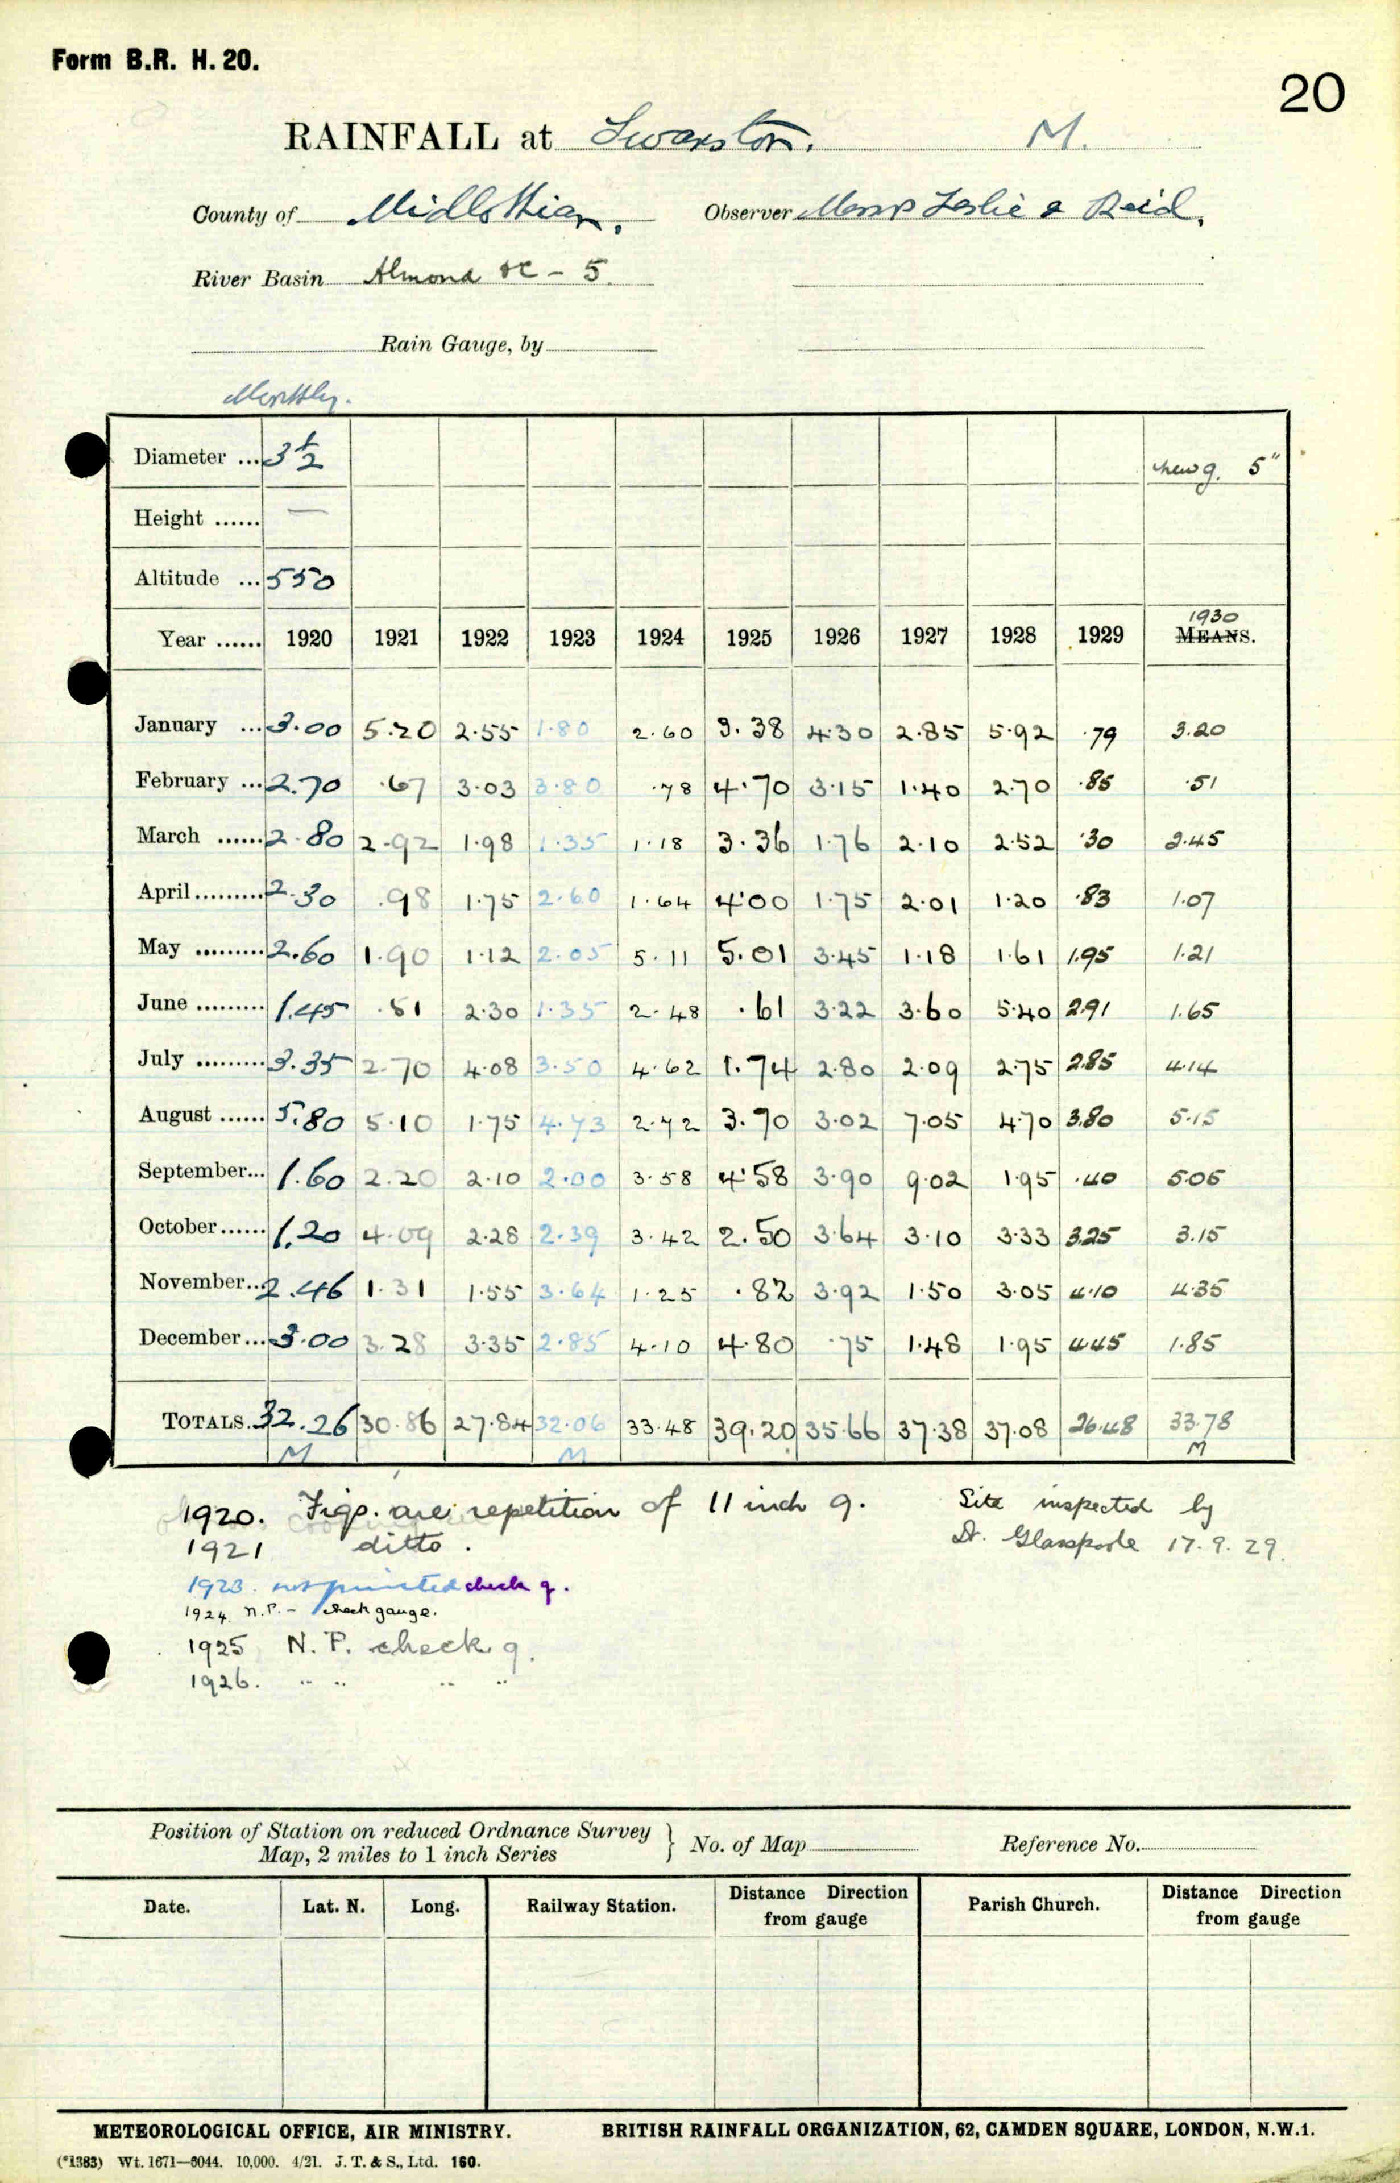 Form B.R. H. 20.
20
RAINFALL at Swanston. M.
County of Midlothian. Observer Messrs Leslie & Reid.
River Basin Almond &c - 5.
Rain Gauge, by
Monthly.
Diameter ... 3½ new g. 5"
Height ...... —
Altitude ... 550
1930
Year ...... 1920 1921 1922 1923 1924 1925 1926 1927 1928 1929 MEANS.
January ... 3.00 5.20 2.55 1.80 2.60 3.38 4.30 2.85 5.92 .79 3.20
February ... 2.70 .67 3.03 3.80 .78 4.70 3.15 1.40 2.70 .85 .51
March ...... 2.80 2.92 1.98 1.35 1.18 3.36 1.76 2.10 2.52 .30 2.45
April ......... 2.30 .98 1.75 2.60 1.64 4.00 1.75 2.01 1.20 .83 1.07
May ......... 2.60 1.90 1.12 2.05 5.11 5.01 3.45 1.18 1.61 1.95 1.21
June ......... 1.45 .51 2.30 1.35 2.48 .61 3.22 3.60 5.40 2.91 1.65
July ......... 3.35 2.70 4.08 3.50 4.62 1.74 2.80 2.09 2.75 2.85 4.14
August ...... 5.80 5.10 1.75 4.73 2.72 3.70 3.02 7.05 4.70 3.80 5.15
September... 1.60 2.20 2.10 2.00 3.58 4.58 3.90 9.02 1.95 .40 5.05
October ...... 1.20 4.09 2.28 2.39 3.42 2.50 3.64 3.10 3.33 3.25 3.15
November... 2.46 1.31 1.55 3.64 1.25 .82 3.92 1.50 3.05 4.10 4.35
December ... 3.00 3.28 3.35 2.85 4.10 4.80 .75 1.48 1.95 4.45 1.85
TOTALS. 32.26 30.86 27.84 32.06 33.48 39.20 35.66 37.38 37.08 26.48 33.78
M M M
1920. Figs. are repetition of 11 inch g. Site inspected by
1921 ditto. Dr. Glasspoole 17.9.29.
1923. not printed check g.
1924 N.P. - check gauge.
1925 N.P. check g.
1926. " " " "
Position of Station on reduced Ordnance Survey
Map, 2 miles to 1 inch Series } No. of Map Reference No.
Date. Lat. N. Long. Railway Station. Distance Direction from gauge Parish Church. Distance Direction from gauge
METEOROLOGICAL OFFICE, AIR MINISTRY. BRITISH RAINFALL ORGANIZATION, 62, CAMDEN SQUARE, LONDON, N.W.1.
(*1383) Wt. 1671—6044. 10,000. 4/21. J. T. & S., Ltd. 160.